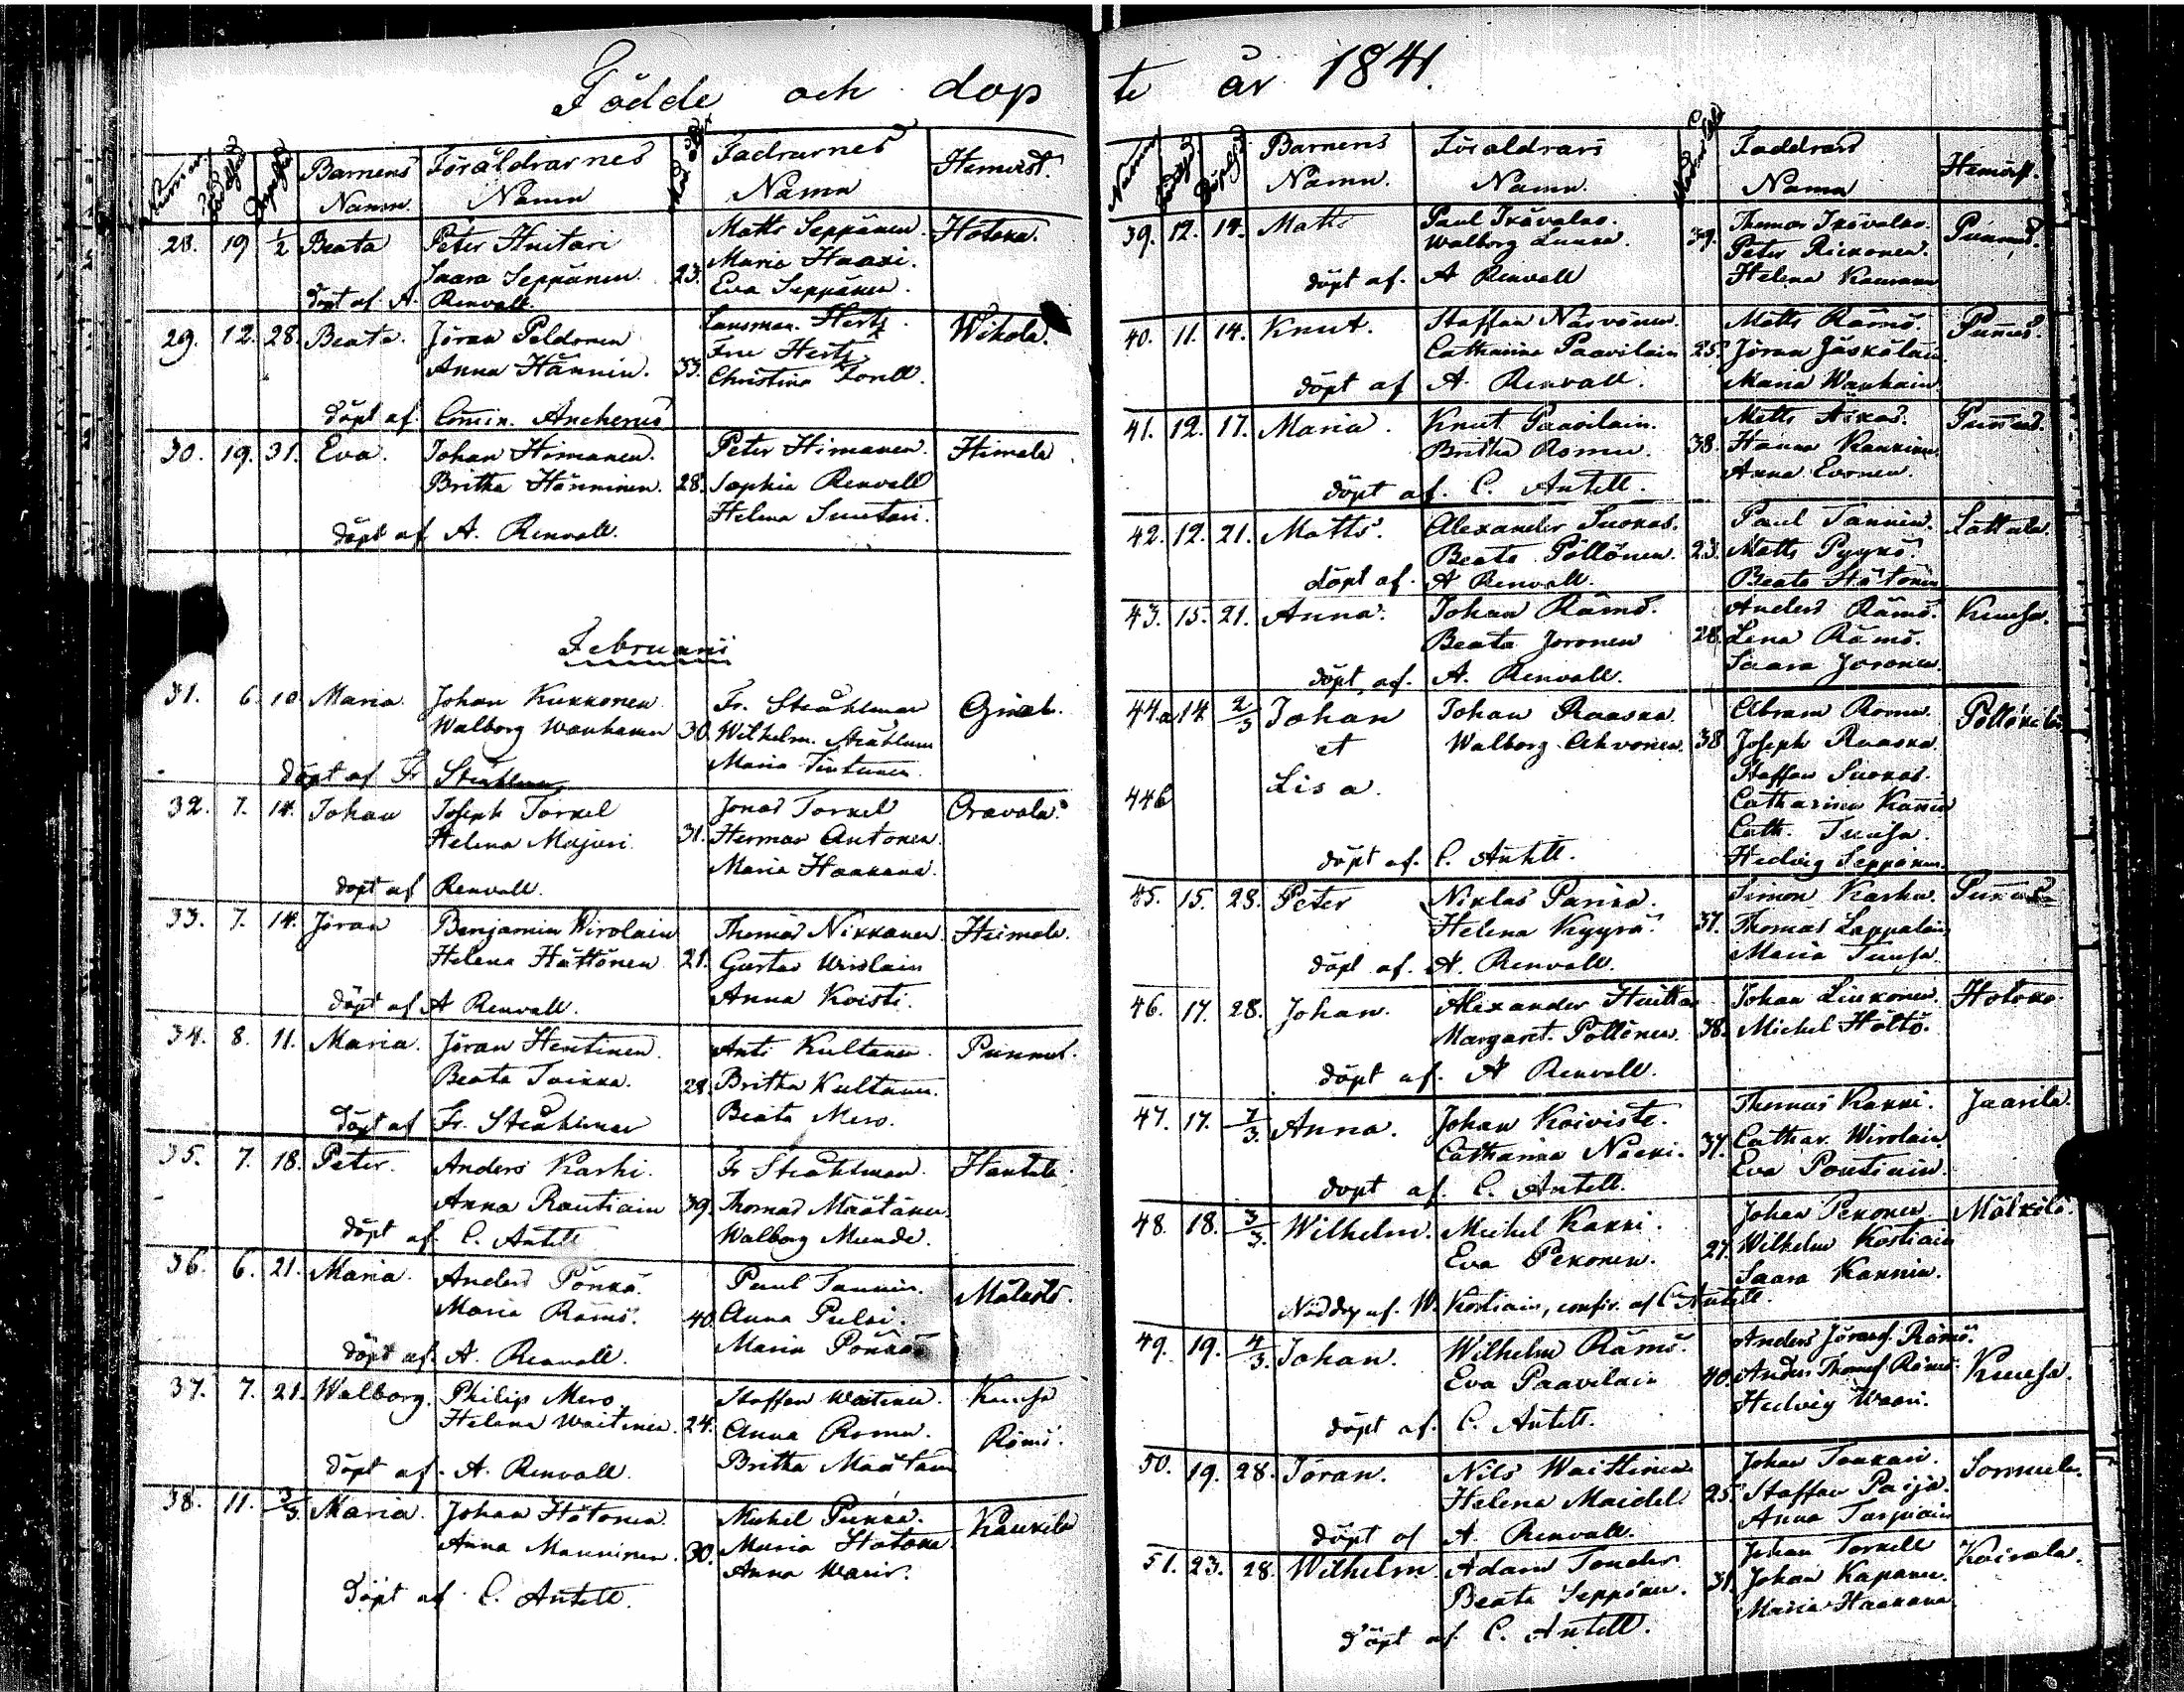 Födde och döp
Nummer Född Döpelsed Barnens Namn Föräldrarnes Namn Fadrarnes Namn Hemvist.
28. 19 1/2 Beata Peter Huitari Matts Seppänen. Hotoka.
Saara Seppänen. 23. Maria Haaxi.
döpt af A. Renvall. Eva Seppänen.
29. 12. 28. Beata. Jöran Peldonen Länsman. Hertz. Wikola.
Anna Hännin. 33. Fru Hertz
Christina Forell.
döpt af Comin. Ancherus
30. 19. 31. Eva. Johan Himanen. Peter Himanen. Heimola
Britha Hänninen. 28. Sophia Renvall
döpt af A. Renvall. Helena Suutari.
Februarii
31. 6. 10 Maria. Johan Kukkonen Fr. Stråhlman
Walborg Wanhanen 30. Wilhelm. Stråhlman
döpt af Fr Stråhlman Maria Tintunen
32. 7. 14. Johan Joseph Torkel Jonas Torkel Oravala.
Helena Majuri 31. Herman Antonen.
döpt af Renvall. Maria Haakana.
33. 7. 14. Jöran Benjamin Wirolain Thomas Nikkanen. Heimola.
Helena Hättönen 21. Gustav Wirolain
döpt af A Renvall. Anna Koisti.
34. 8. 11. Maria. Jöran Hentinen. Anti Kultanen. Punnus.
Beata Toikka. 28. Britha Kultanen.
döpt af Fr. Stråhlman Beata Mero.
35. 7. 18. Peter. Anders Karhi. Fr Stråhlman.
Anna Rautiain 39. Thomas Määtänen.
döpt af C. Antell Walborg Munde.
36. 6. 21. Maria. Anders Pönkä. Paul Tannin.
Maria Rämö. 40. Anna Pulsi.
döpt af. A. Renvall. Maria Pönkä
37. 7. 21. Walborg. Philip Mero Staffan Waitinen. Kuusa
Helena Waitinen. 24. Anna Romu. Rämö.
döpt af. A. Renvall. Britha Määtän
38. 11. 3/3. Maria. Johan Hötonen. Michel Pukka. Kaukila
Anna Manninen. 30. Maria Hötönen.
döpt af C. Antell. Anna
te år 1841.
Barnens Namn. Föräldrars Namn. Faddrars Namn Hemvist.
39. 12. 14. Matts Paul Ikävalko. Thomas Ikävalko. Punnus.
Walborg Lunka. 39. Peter Rickonen.
döpt af. A Renvall Helena
40. 11. 14. Knut. Staffan Närvänen. Matts Rämö. Punnus.
Catharina Paavilain 25. Jöran Jäskeläin.
döpt af A. Renvall. Maria Wanhain
41. 12. 17. Maria. Knut Paavilain. Matts Äikäs. Punnus.
Britha Romu. 38. Hanna Kankinen
döpt af. C. Antell. Anna Evonen.
42. 12. 21. Matts. Alexander Suokas. Paul Tannin. Lattula.
Beata Pöllönen. 23. Matts Pyykö.
döpt af. A Renvall. Beata Hätönin
43. 15. 21. Anna. Johan Rämö. Anders Rämö. Kuusa.
Beata Joronen 28. Lena Rämö.
döpt af. A. Renvall. Saara Joronen.
44a. 14 2/3 Johan Johan Raaska Abram Romu. Pöllökila
et Walborg Ahvonen. 38 Joseph Raaska.
Lisa. Staffan Suokas.
44b Catharina Kannin
Cath. Tuusa.
döpt af. C. Antell. Hedvig Seppänen.
45. 15. 28. Peter Niklas Parika. Simon Karhu. Punnus
Helena Kyyrä. 37. Thomas Lappalain
döpt af. A. Renvall. Maria Tuusa.
46. 17. 28. Johan. Alexander Huittar Johan Liukonen. Hotoka.
Margaret. Pöllönen. 38. Michel Höltö.
döpt af. A Renvall.
47. 17. 7/3. Anna. Johan Koiviste. Thomas Kakki. Jaarila.
Catharina Naaki. 37. Cathar. Wirolain
döpt af. C. Antell. Eva Pontiain.
48. 18. 3/3. Wilhelm. Michel Kakki. Johan Pekonen. Mälkölä.
Eva Pekonen. 27. Wilhelm Kostiain
Saara Kannin.
Nöddöp af. W. Kostiain, confir. af C Antell.
49. 19. 4/3. Johan. Wilhelm Rämö. Anders Jöransf. Rämö.
Eva Paavilain 40. Anders Thomsf. Rämö. Kuusa.
döpt af. C. Antell. Hedvig Waari.
50. 19. 28. Jöran. Nils Waittinen Johan Toukari. Sormula.
Helena Maidell 25. Staffan Paija.
döpt af A. Renvall. Anna Tarpiain
51. 23. 28. Wilhelm Adam Tonder Johan Torkell Koirala.
Beata Seppänen. 31. Johan Kapanen.
döpt af. C. Antell. Maria Haakana